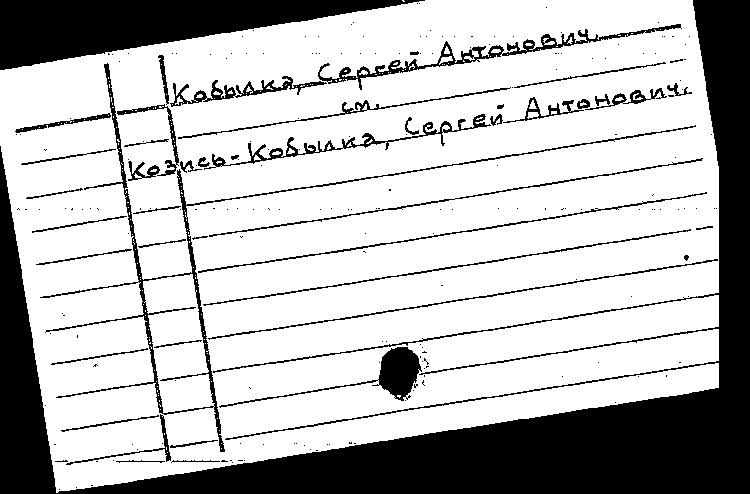 Кобылка, Сергей Антонович.
см.
Козись-Кобылка, Сергей Антонович.